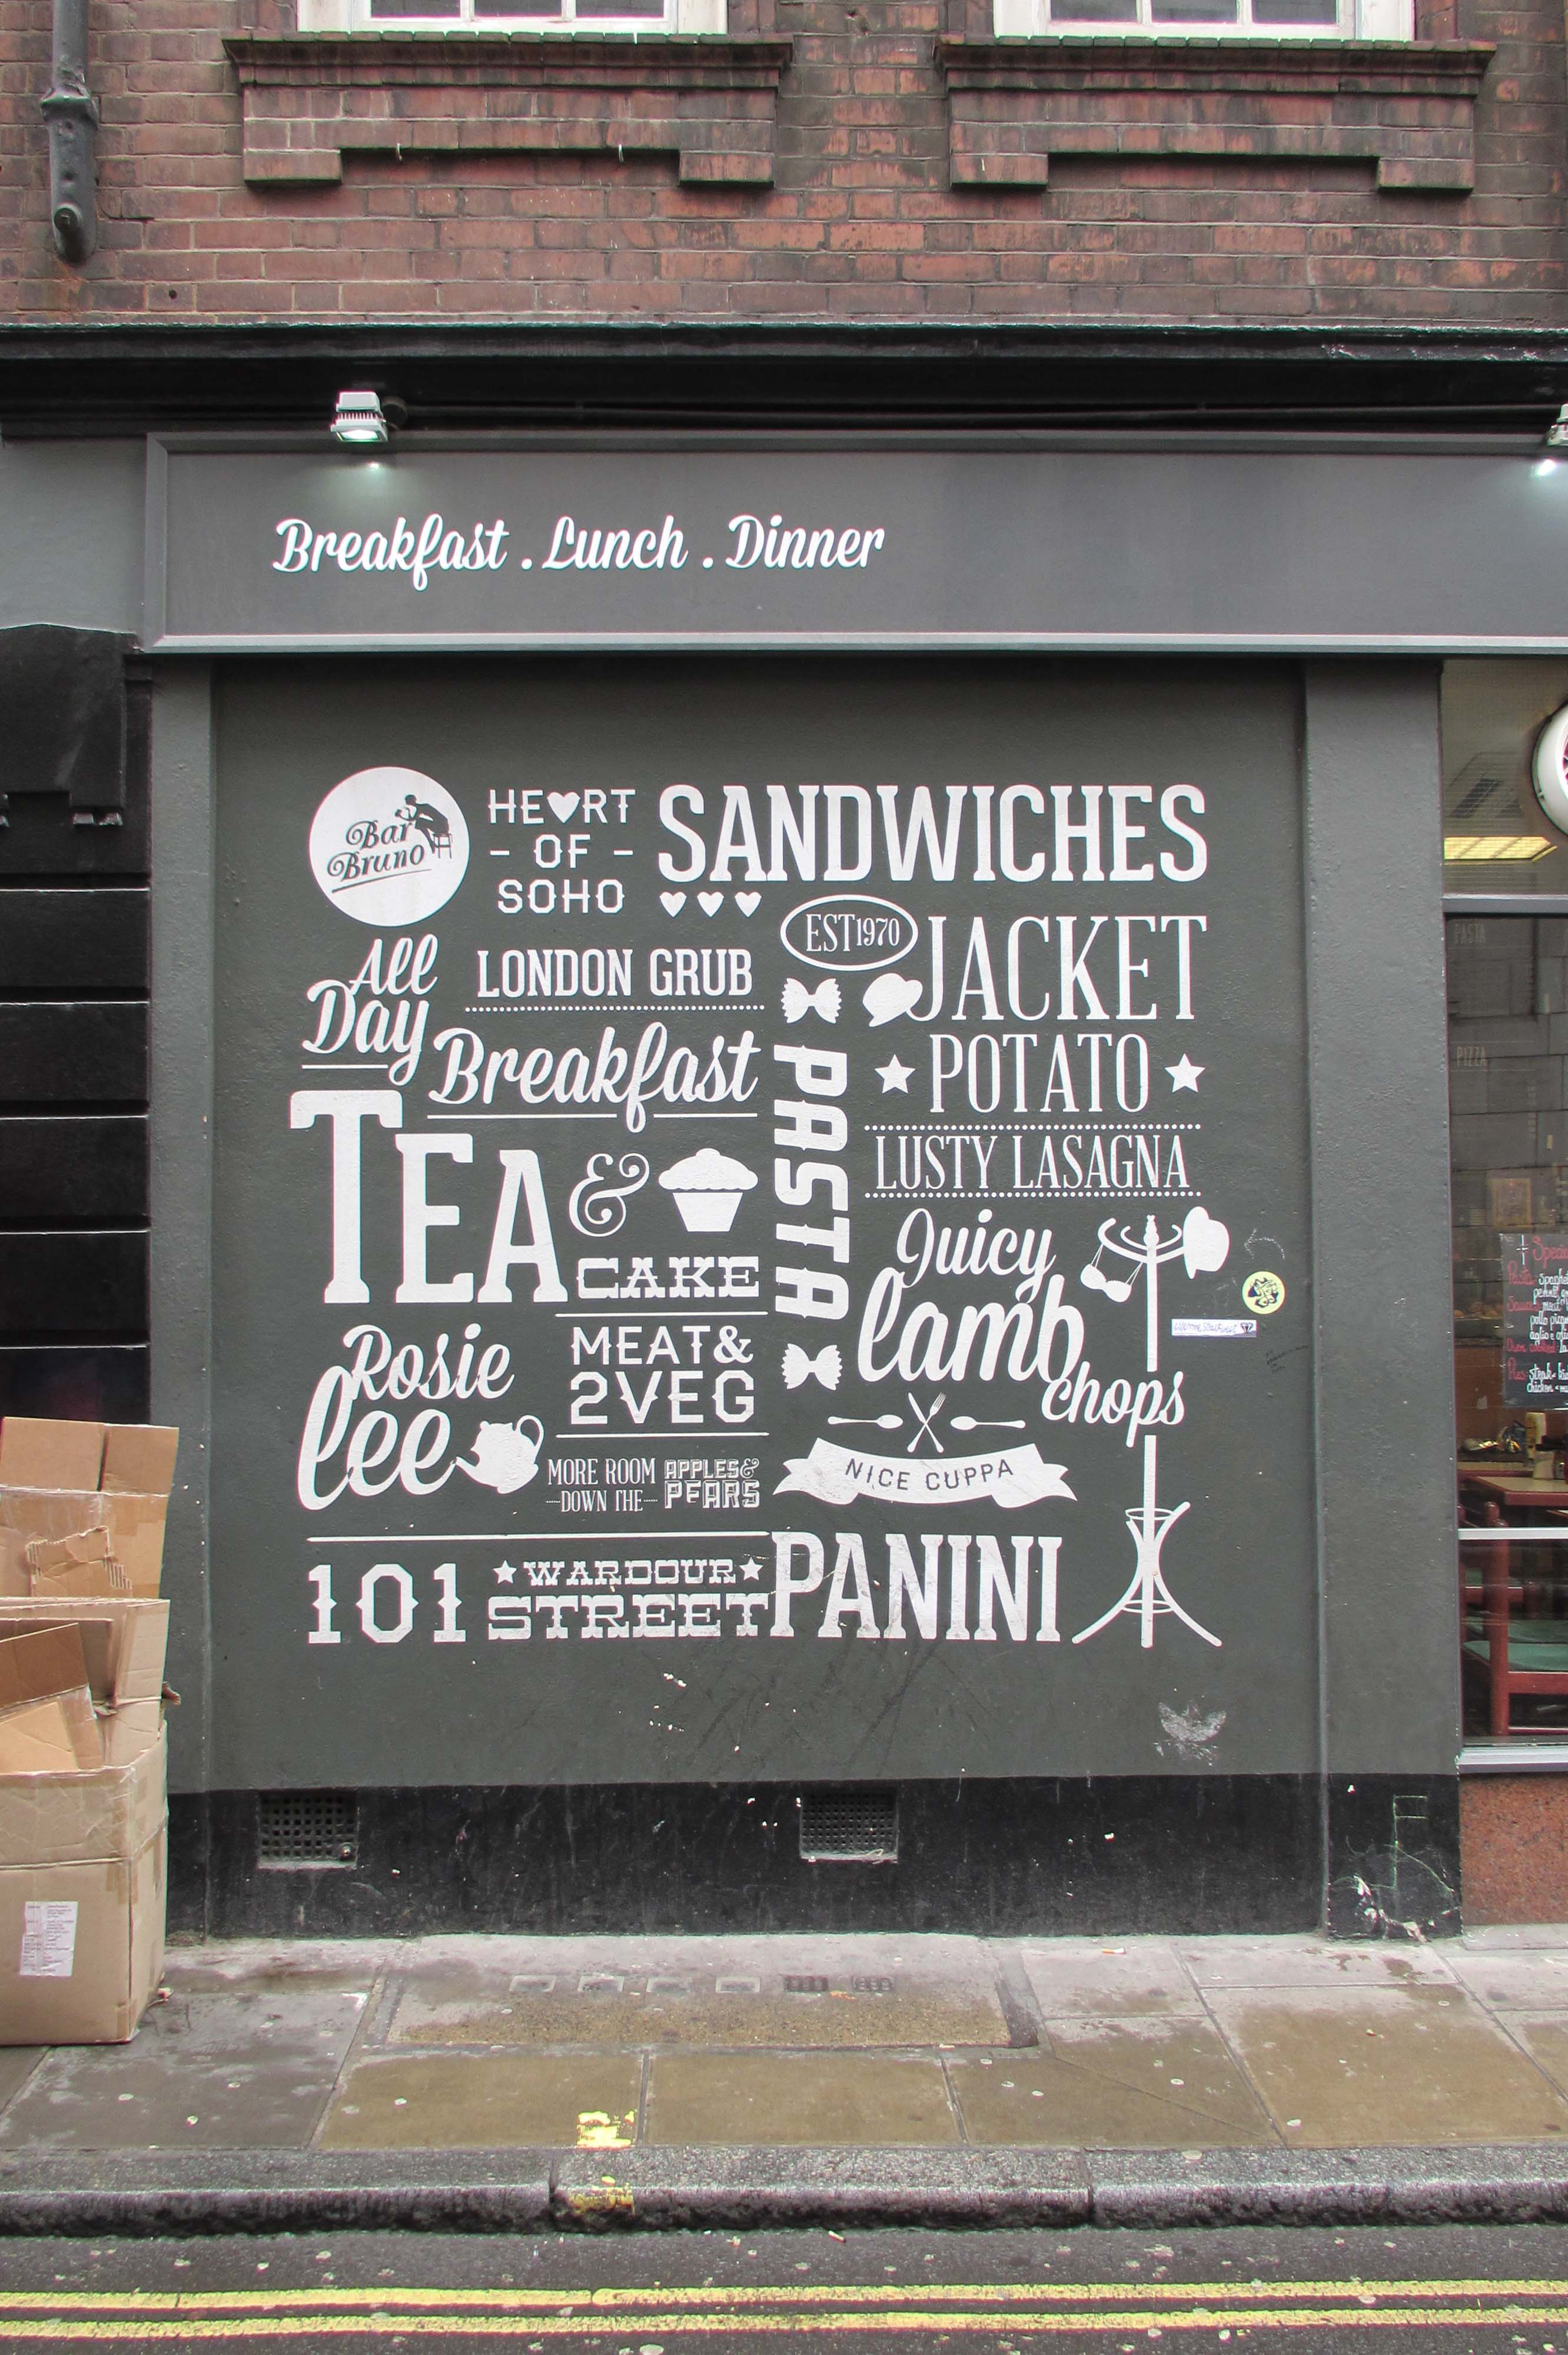 Breakfast . Lunch . Dinner
Bar
Bruno
HE♥RT
- OF -
SOHO
SANDWICHES
EST 1970
All
Day
LONDON GRUB
Breakfast
JACKET
POTATO
PASTA
LUSTY LASAGNA
TEA &
CAKE
Juicy
lamb
chops
Rosie
lee
MEAT&
2VEG
MORE ROOM
DOWN THE
APPLES&
PEARS
NICE CUPPA
101
WARDOUR
STREET
PANINI
PASTA
PIZZA